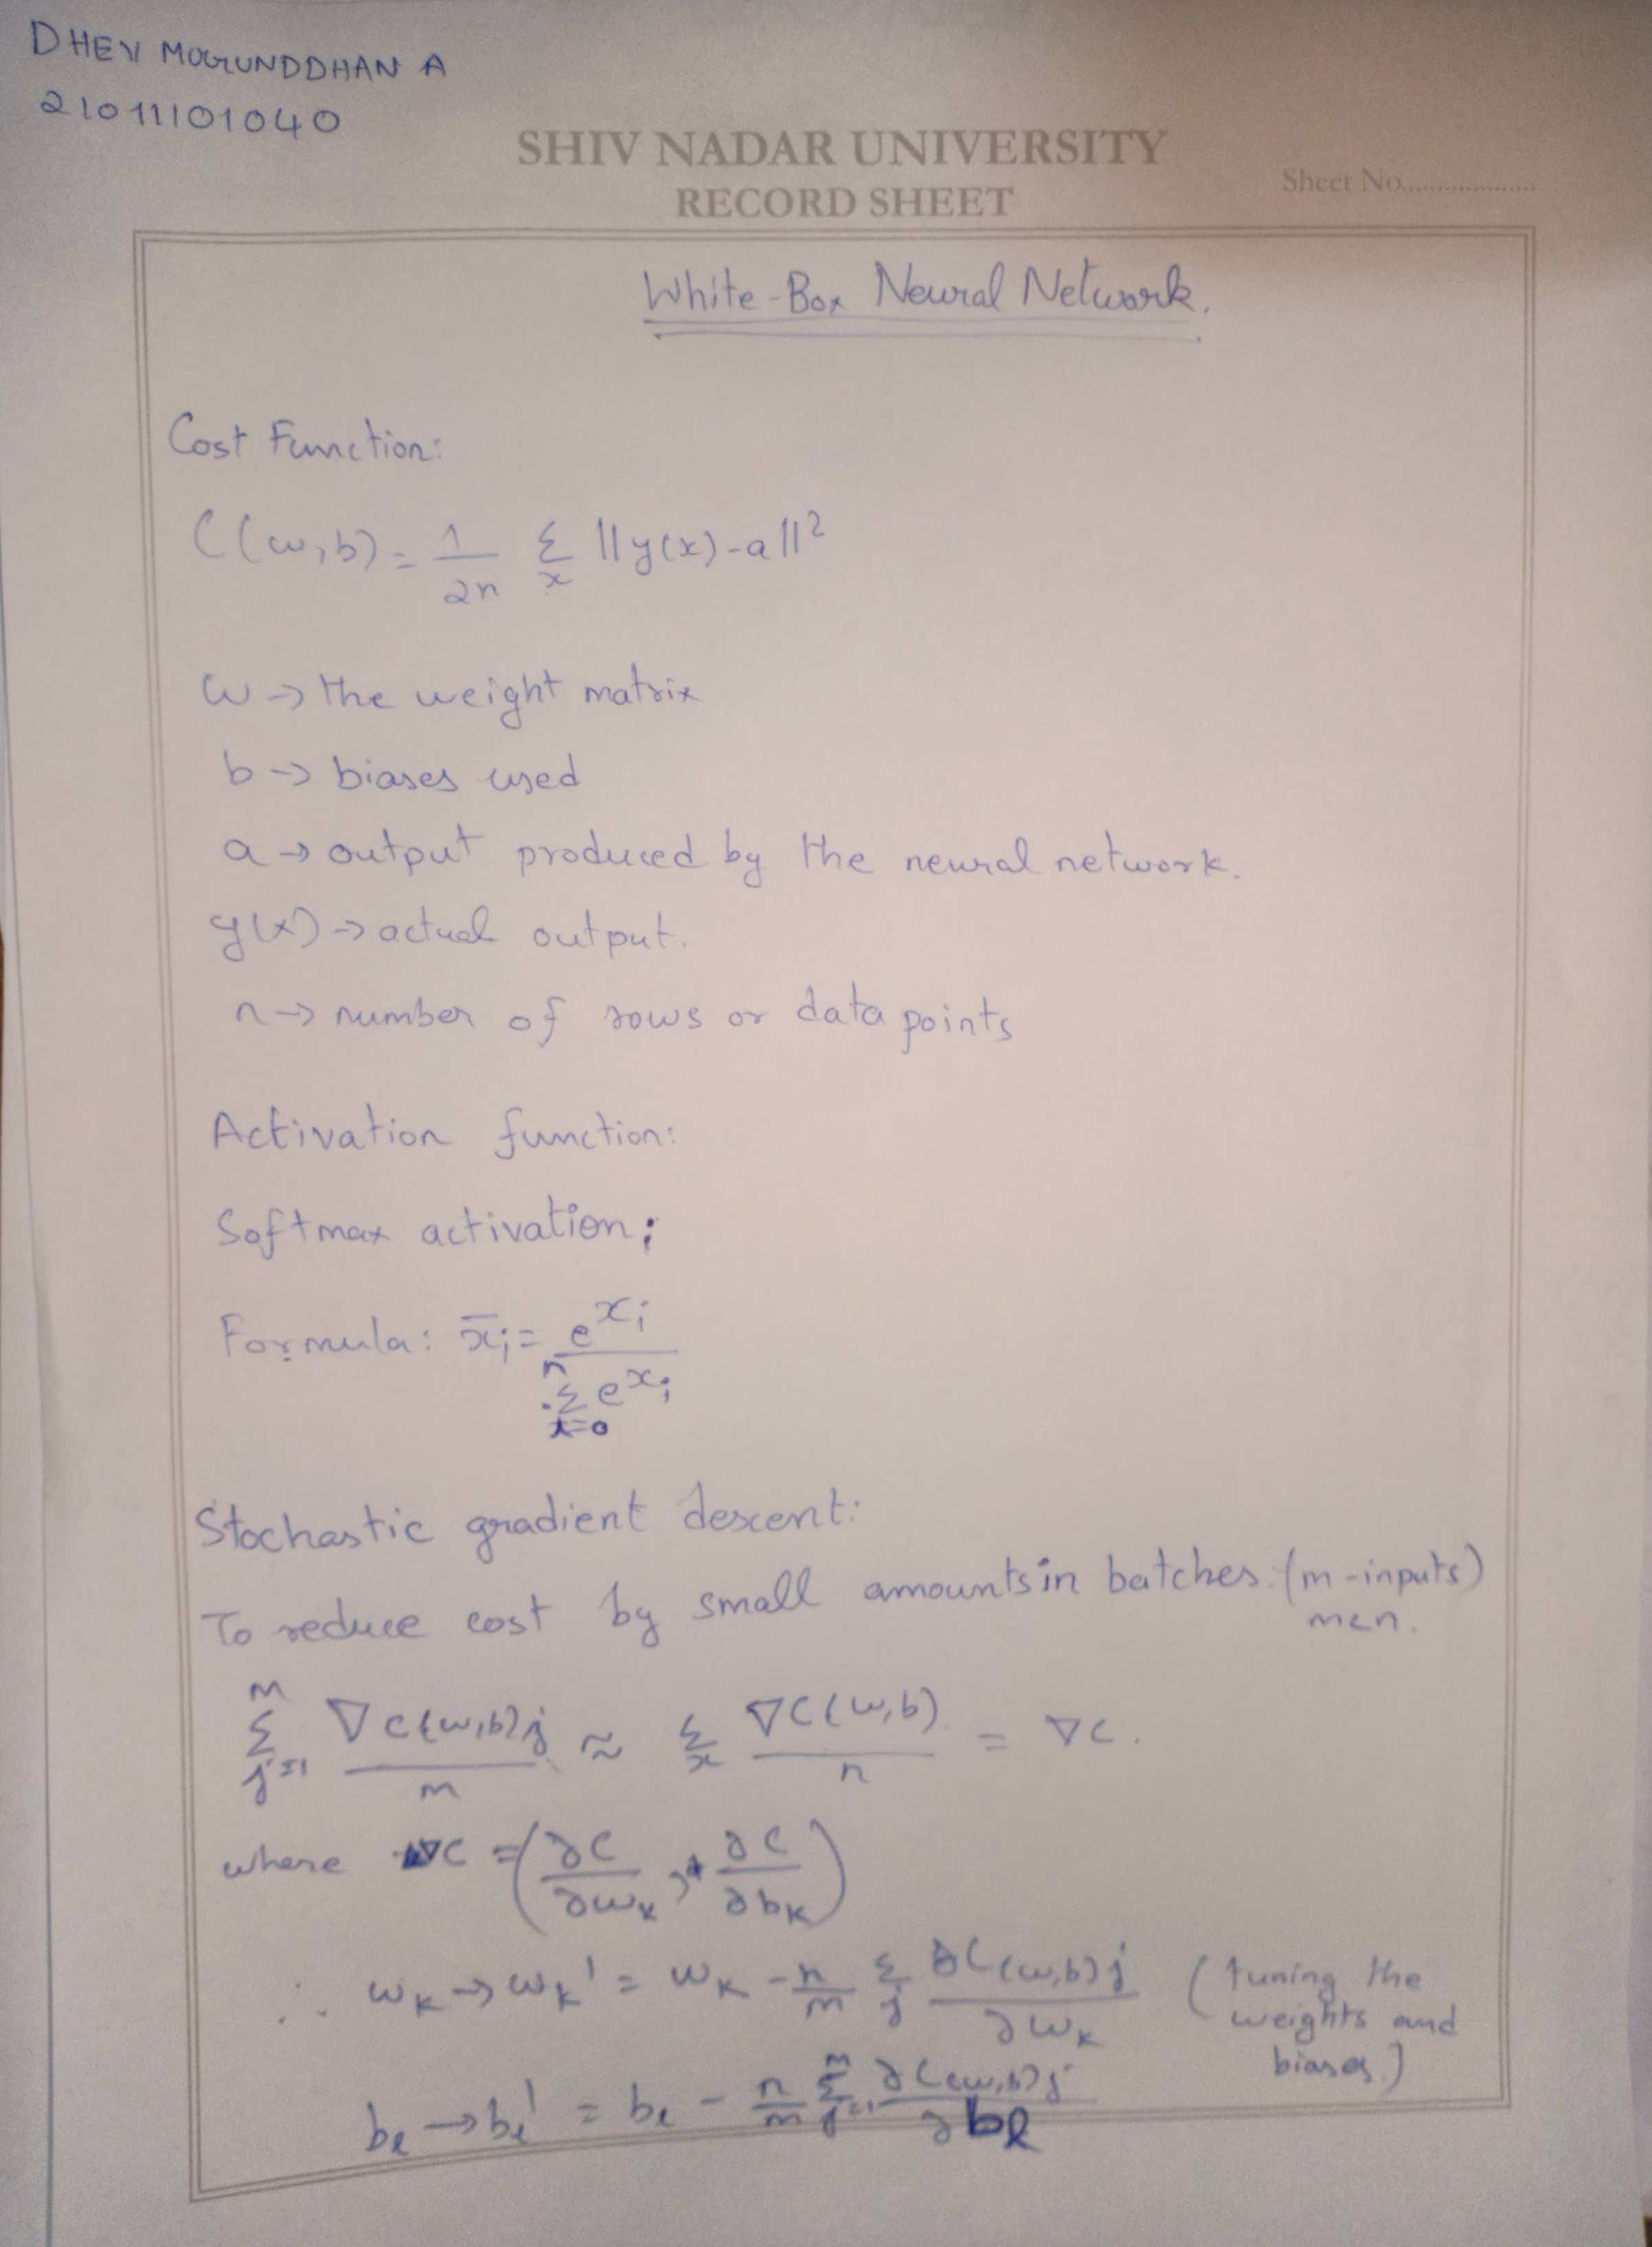 DHEV MUGUNDDHAN A
21011101040
SHIV NADAR UNIVERSITY
RECORD SHEET
Sheet No..................
White-Box Neural Network.
Cost Function:
C(w,b) = 1/2n Σ_x ||y(x)-a||²
w → the weight matrix
b → biases used
a → output produced by the neural network.
y(x) → actual output.
n → number of rows or data points
Activation function:
Softmax activation;
Formula: x̄ᵢ = e^xᵢ / Σ_{x=0}^{n} e^xᵢ
Stochastic gradient descent:
To reduce cost by small amounts in batches. (m-inputs)
m<n.
Σ_{j=1}^{m} ∇C(w,b)j / m ≈ Σ_x ∇C(w,b) / n = ∇C.
where ∇C = (∂C/∂w_k, ∂C/∂b_k)
∴ w_k → w_k' = w_k - n/m Σ_j ∂C(w,b)j / ∂w_k (tuning the
weights and
biases.)
b_l → b_l' = b_l - n/m Σ_{j=1}^{m} ∂C(w,b)j / ∂b_l